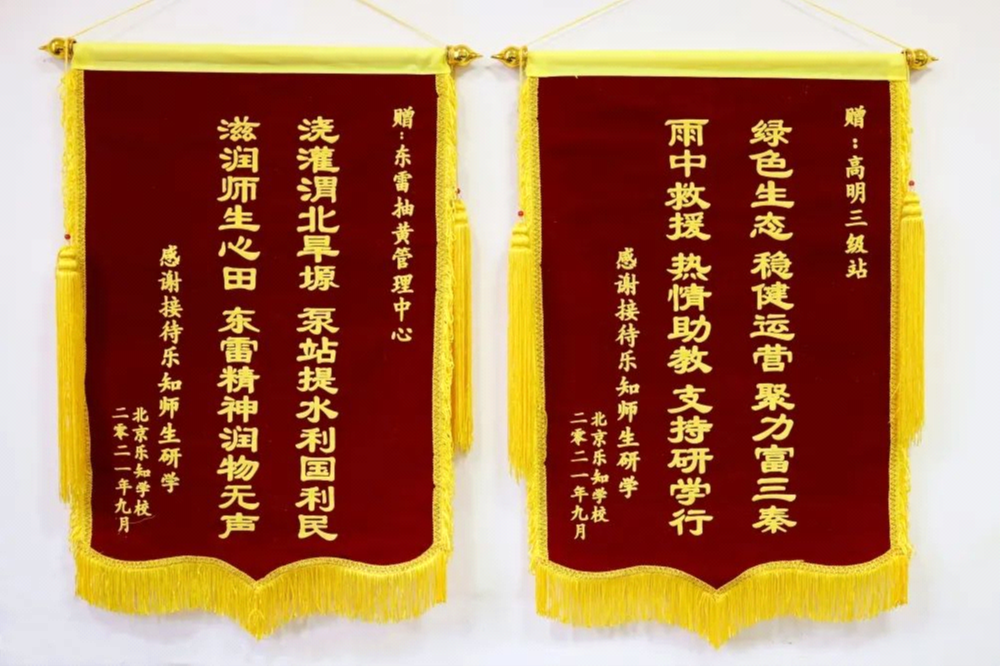 赠：东雷抽黄管理中心
浇灌渭北旱塬 泵站提水利国利民
滋润师生心田 东雷精神润物无声
感谢接待乐知师生研学
北京乐知学校
二零二一年九月
赠：高明三级站
绿色生态 稳健运营 聚力富三秦
雨中救援 热情助教 支持研学行
感谢接待乐知师生研学
北京乐知学校
二零二一年九月